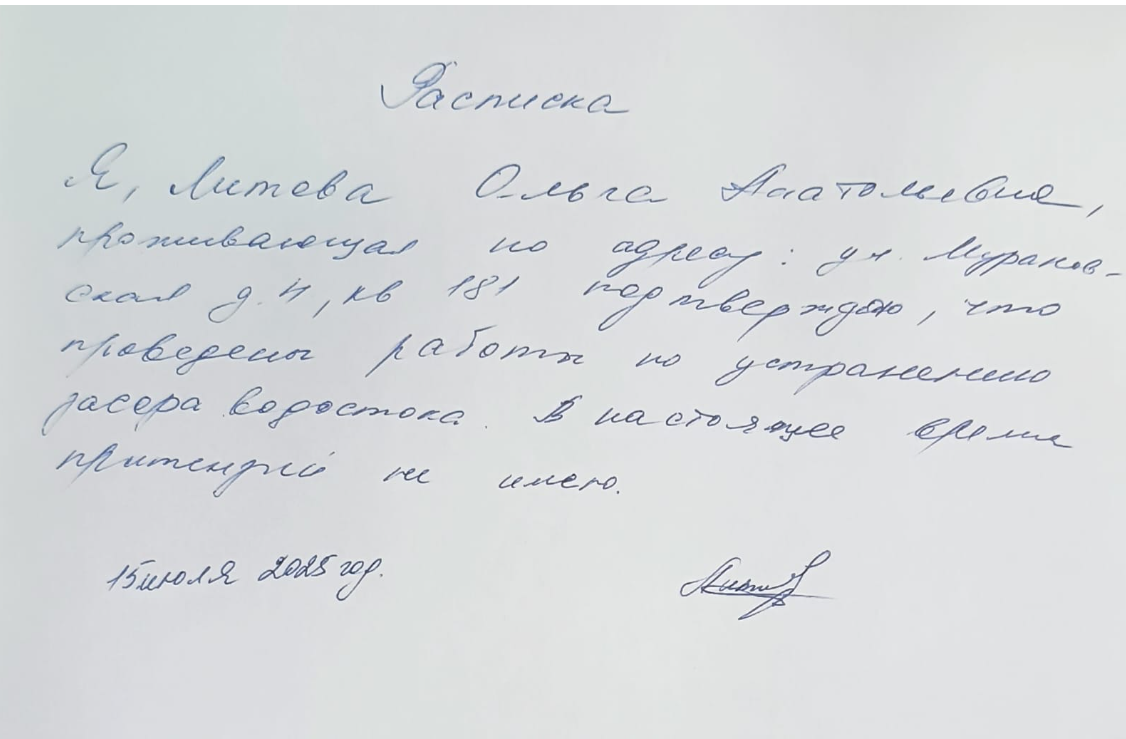 Расписка
Я, Литева Ольга Анатольевна,
проживающая по адресу: ул. Муранов-
ская д. 4, кв 181 подтверждаю, что
проведены работы по устранению
засора водостока. В настоящее время
притензий не имею.
15 июля 2025 год.